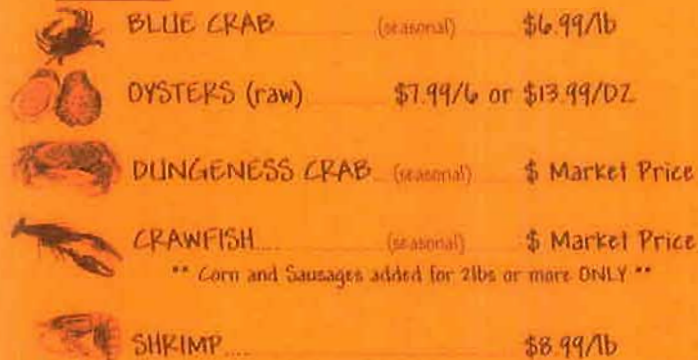 BLUE CRAB (seasonal) $6.99/lb
OYSTERS (raw) $7.99/6 or $13.99/DZ
DUNGENESS CRAB (seasonal) $ Market Price
CRAWFISH.... (seasonal) $ Market Price
** Corn and Sausages added for 2lbs or more ONLY **
SHRIMP.... $8.99/lb